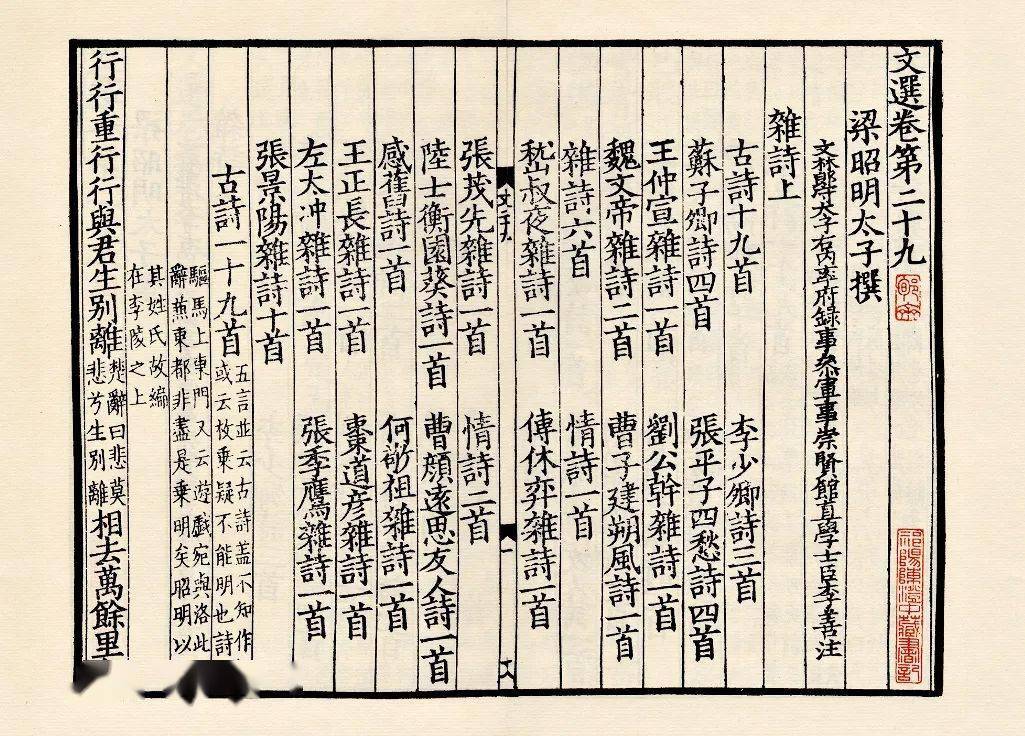 文選卷第二十九
梁昭明太子撰
文林郎守太子右内率府録事叅軍事崇賢館直學士臣李善注
雜詩上
古詩十九首 李少卿詩三首
蘇子卿詩四首 張平子四愁詩四首
王仲宣雜詩一首 劉公幹雜詩一首
魏文帝雜詩二首 曹子建朔風詩一首
雜詩六首 情詩一首
嵇叔夜雜詩一首 傅休弈雜詩一首
文二十九
一
張茂先雜詩一首 情詩二首
陸士衡園葵詩一首 曹顔遠思友人詩一首
感舊詩一首 何敬祖雜詩一首
王正長雜詩一首 棗道彦雜詩一首
左太冲雜詩一首 張季鷹雜詩一首
張景陽雜詩十首
古詩一十九首
五言並云古詩盖不知作
或云枚乗疑不能明也詩
驅馬上東門又云遊戲宛與洛此
辭兼東都非盡是乗明矣昭明以
其姓氏故編
在李陵之上
行行重行行與君生别離
楚辭曰悲莫
悲兮生别離
相去萬餘里